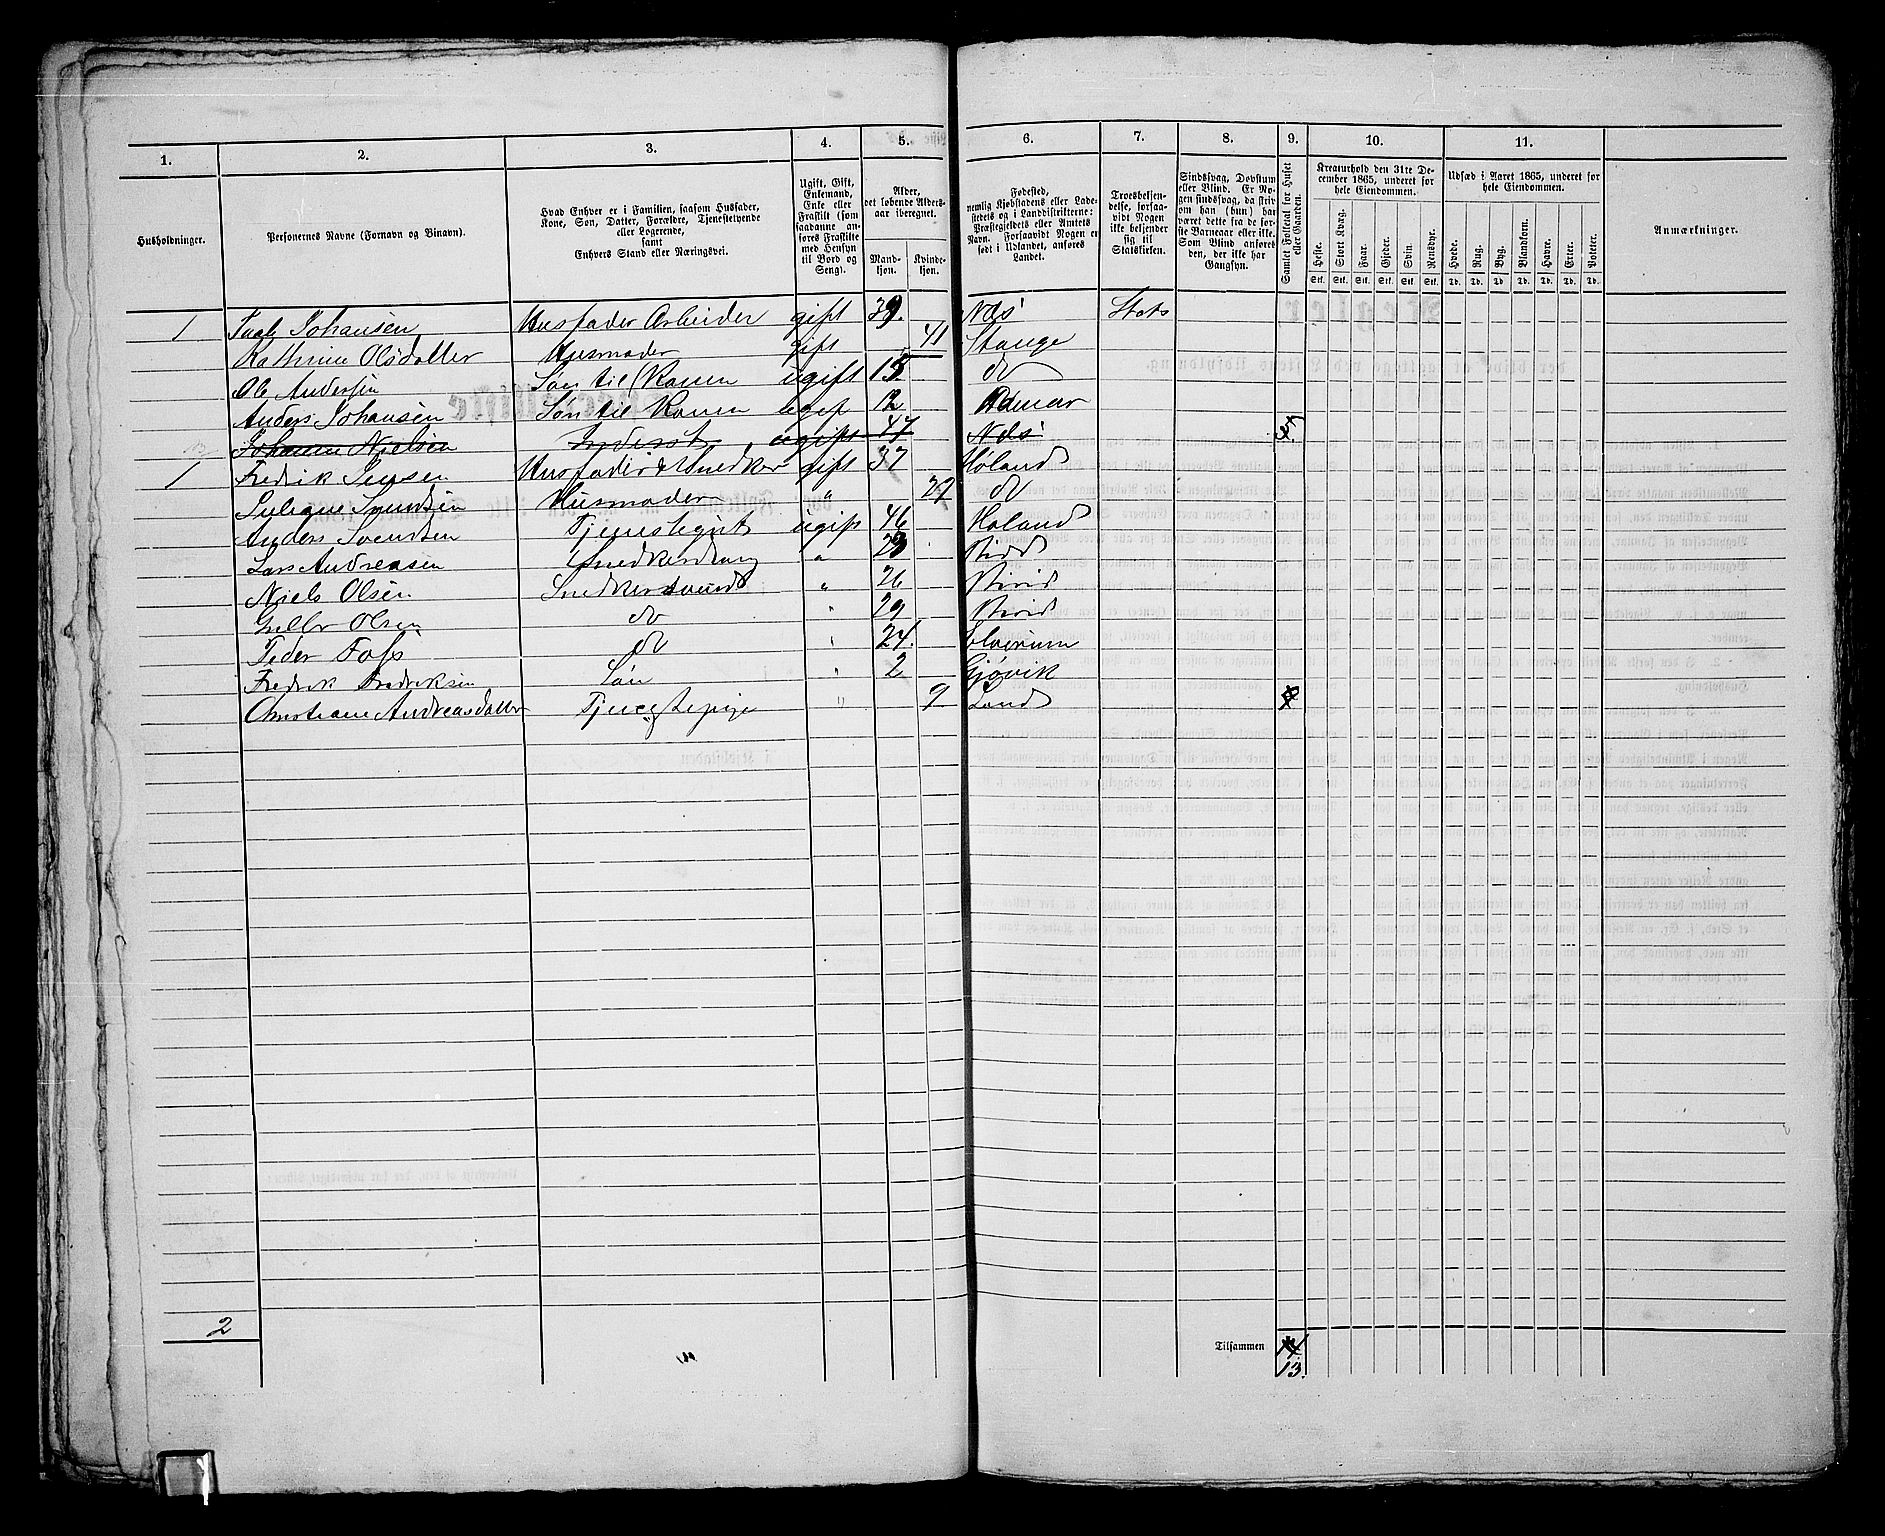 1. 2. 3. 4. 5. 6. 7. 8. 9. 10. 11.
Husholdninger.
Personernes Navne (Fornavn og Binavn).
Hvad Enhver er i Familien, saasom Husfader, Kone, Søn, Datter, Forældre, Tjenestetyende eller Logerende, samt Enhvers Stand eller Næringsvei.
Ugift, Gift, Enkemand, Enke eller Fraskilt (som saadanne anføres Fraskilte med Hensyn til Bord og Seng).
Alder, det løbende Aldersaar iberegnet.
Mandkjøn. Kvindekjøn.
Fødested, nemlig Kjøbstadens eller Ladestedets og i Landdistrikterne: Præstegjeldets eller Amtets Navn. Forsaavidt Nogen er født i Udlandet, anføres Landet.
Troesbekjendelse, forsaavidt Nogen ikke bekjender sig til Statskirken.
Sindssvag, Døvstum eller Blind. Er Nogen sindssvag, da skrives om han (hun) har været dette fra de første Barneaar eller ikke. Som Blind anføres den, der ikke har Gangsyn.
Samlet Folketal for Huset eller Gaarden.
Kreaturhold den 31te December 1865, underet for hele Eiendommen.
Heste. Stort Kvæg. Faar. Gjeder. Svin. Rensdyr.
Stk. Stk. Stk. Stk. Stk. Stk.
Udsæd i Aaret 1865, underet for hele Eiendommen.
Hvede. Rug. Byg. Blandkorn. Havre. Erter. Poteter.
Td. Td. Td. Td. Td. Td. Td.
Anmærkninger.
1 Johansen Husfader Arbeider gift 39. Næs Stats
Kathrine Olsdatter Husmoder gift 41 Stange
Ole Andersen Søn til Konen ugift 15 do
Anders Johansen Søn til Konen ugift 12
Johanne Nielsen Inderst ugift 47 Næs 5
1 Fredrik Jensen Husfader Snedker gift 37 Høland
Svendsen Husmoder " 29 do
Anders Svendsen ugift 46 Høland
Lars Andreasen Snedkerdreng " 23
Niels Olsen Snedkersvend " 26 Birid
Olsen do " 29 Birid
Peder Foss do " 24. Elverum
Fredrik Fredriksen Søn " 2 Gjøvik
Christiane Andreasdatter Tjenestepige " 9 Land
2
Tilsammen 14
13.